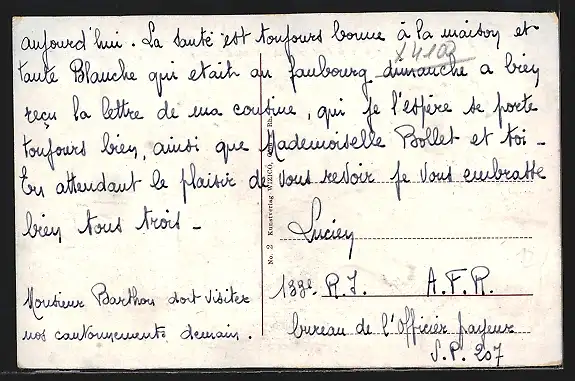 aujourd'hui. La santé est toujours bonne à la maison et
tante Blanche qui etait au faubourg dimanche a bien
reçu la lettre de ma cousine, qui je l'espère se porte
toujours bien, ainsi que Mademoiselle Bollet et toi -
En attendant le plaisir de vous revoir je vous embrasse
bien tous trois -
Lucien
Monsieur Barthou doit visiter
nos cantonnements demain.
133e R.I. A.F.R.
bureau de l'Officier payeur
S.P. 207
No. 2 Kunstverlag WIZICO,